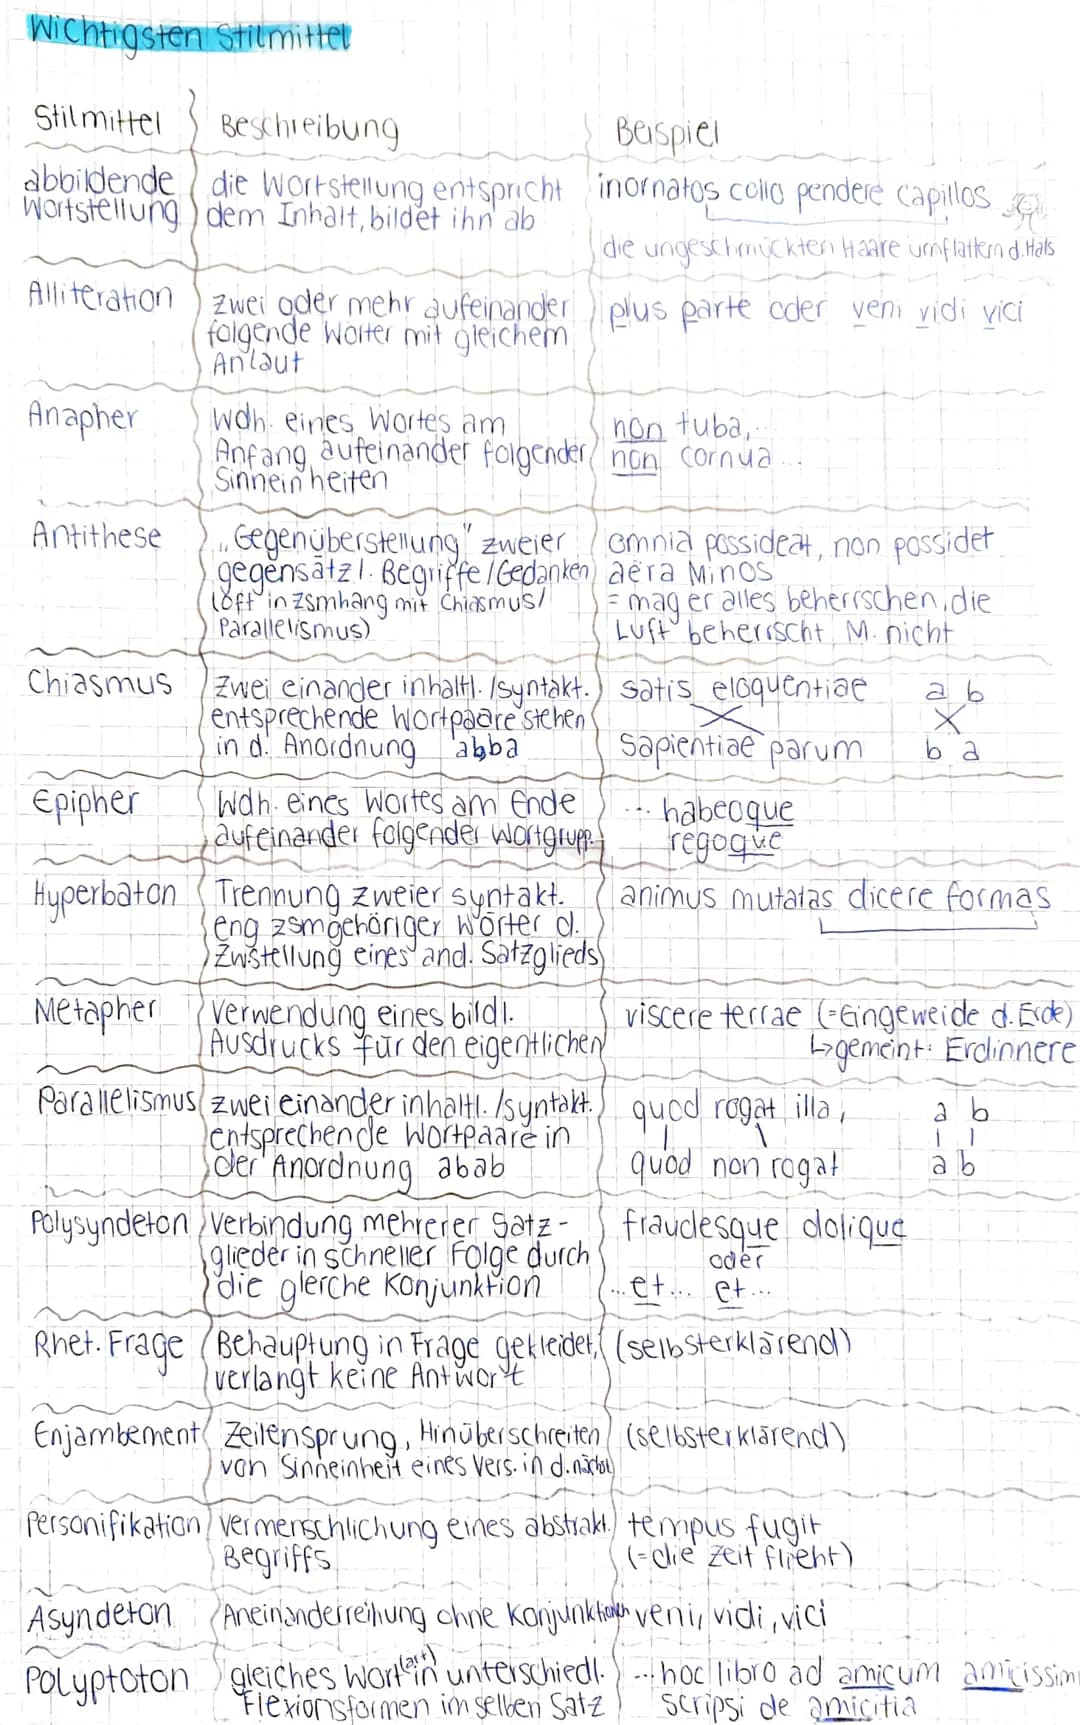 Wichtigsten Stilmittel
Stilmittel Beschreibung Beispiel
abbildende die Wortstellung entspricht inornatos collo pendere capillos
Wortstellung dem Inhalt, bildet ihn ab
die ungeschmückten Haare umflattern d. Hals
Alliteration zwei oder mehr aufeinander plus parte oder veni vidi vici
folgende Wörter mit gleichem
Anlaut
Anapher Wdh. eines Wortes am non tuba,..
Anfang aufeinander folgender non cornua...
Sinneinheiten
Antithese „Gegenüberstellung" zweier omnia possideat, non possidet
gegensätzl. Begriffe/Gedanken aëra Minos
(oft in zsmhang mit Chiasmus/ = mag er alles beherrschen, die
Parallelismus) Luft beherrscht M. nicht
Chiasmus zwei einander inhaltl./syntakt. satis eloquentiae a b
entsprechende Wortpaare stehen
in d. Anordnung abba sapientiae parum b a
Epipher Wdh. eines Wortes am Ende ... habeoque
aufeinander folgender Wortgrupp. regoque
Hyperbaton Trennung zweier syntakt. animus mutatas dicere formas
eng zsmgehöriger Wörter d.
Zwstellung eines and. Satzglieds
Metapher Verwendung eines bildl. viscere terrae (=Eingeweide d. Erde)
Ausdrucks für den eigentlichen ↳gemeint: Erdinnere
Parallelismus zwei einander inhaltl./syntakt. quod rogat illa, a b
entsprechende Wortpaare in
der Anordnung abab quod non rogat a b
Polysyndeton Verbindung mehrerer Satz- fraudesque dolique
glieder in schneller Folge durch oder
die gleiche Konjunktion ...et... et...
Rhet. Frage Behauptung in Frage gekleidet, (selbsterklärend)
verlangt keine Antwort
Enjambement Zeilensprung, Hinüberschreiten (selbsterklärend)
von Sinneinheit eines Vers. in d. nächst
Personifikation Vermenschlichung eines abstrakt. tempus fugit
Begriffs (=die Zeit flieht)
Asyndeton Aneinanderreihung ohne Konjunktionen veni, vidi, vici
Polyptoton gleiches Wort(art) in unterschiedl. ...hoc libro ad amicum amicissimi
Flexionsformen im selben Satz scripsi de amicitia